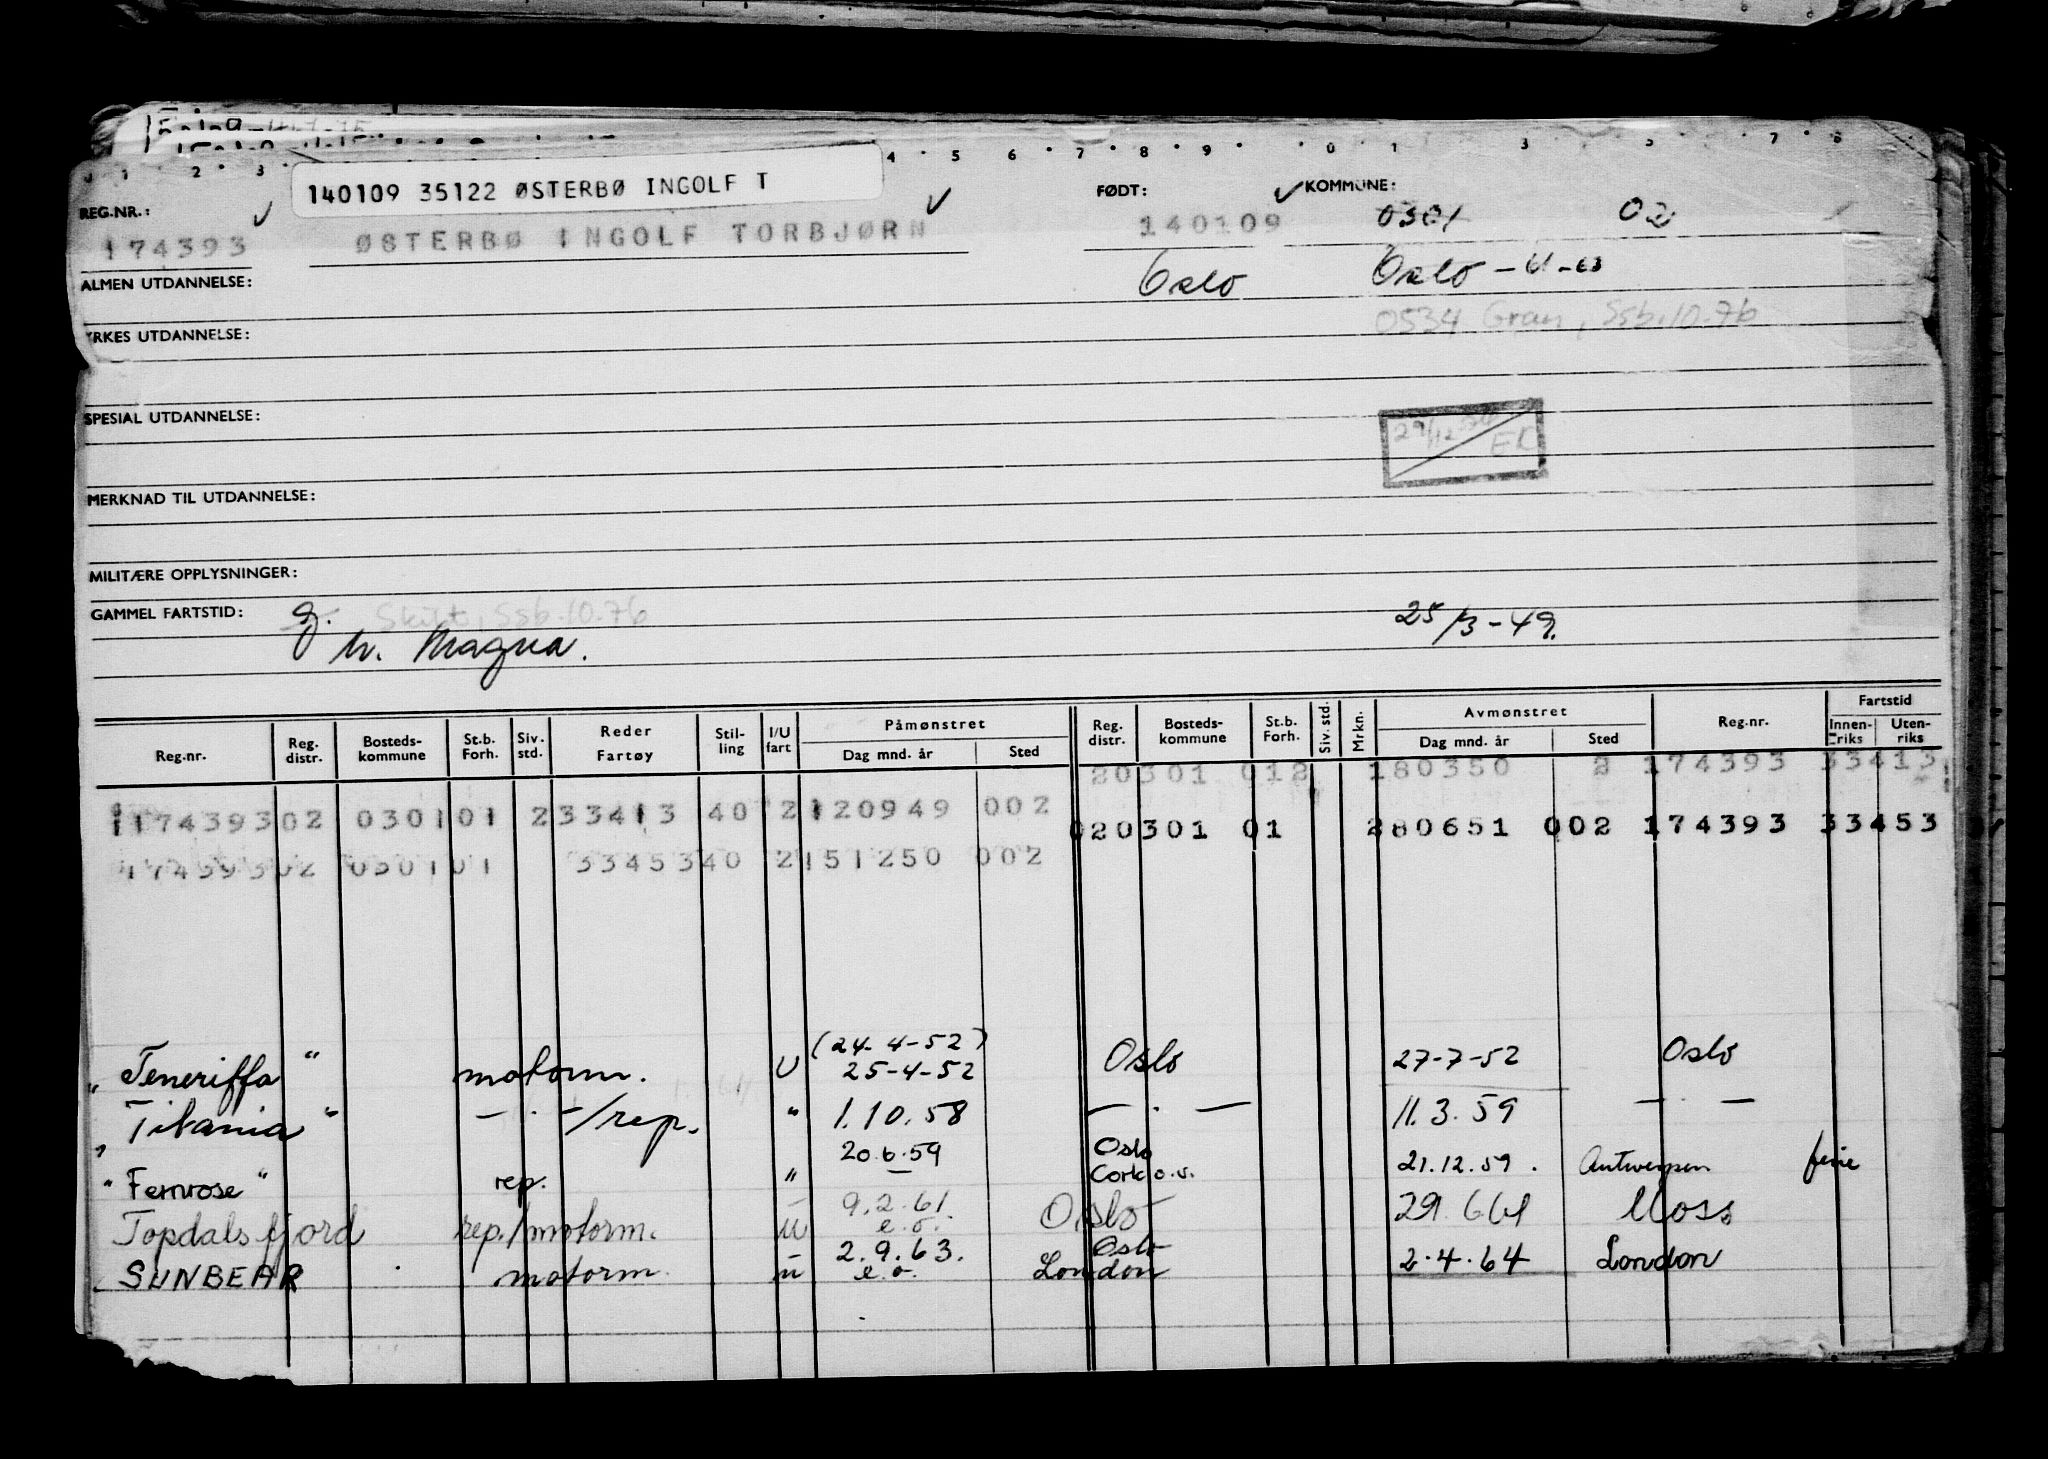 140109 35122 ØSTERBØ INGOLF T
REG.NR.: FØDT: KOMMUNE:
174393 ØSTERBØ INGOLF TORBJØRN 140109 0301 02
ALMEN UTDANNELSE: Oslo Oslo - 4-63
0534 Gran, Ssb.10.76
YRKES UTDANNELSE:
SPESIAL UTDANNELSE:
29/12 EK
MERKNAD TIL UTDANNELSE:
MILITÆRE OPPLYSNINGER:
GAMMEL FARTSTID: Skikt, Ssb.10.76 25/3-49.
M. Magna.
Reg.nr. Reg. distr. Bosteds- kommune St.b. Forh. Siv. std. Reder Fartøy Stil- ling I/U fart Påmønstret Dag mnd. år Sted Reg. distr. Bosteds- kommune St.b. Forh. Siv. std. Mrkn. Avmønstret Dag mnd. år Sted Reg.nr. Fartstid Innen- riks Uten- riks
20301 012 180350 2 174393 33413
174393 02 0301 01 2 33413 40 2 120949 002
020301 01 280651 002 174393 33453
174393 02 0301 01 33453 40 2 151250 002
(24-4-52)
"Teneriffa" motorm. U 25-4-52 Oslo 27-7-52 Oslo
"Titania" — . —/rep. " 1.10.58 — . — 11.3.59 — . —
20.6.59 Oslo
"Fernrose" rep. " — Cork o.s. 21.12.59. Antwerpen ferie
9.2.61.
Topdalsfjord rep./motorm. u e.o. Oslo 29.6.61 Moss
2.9.63. Oslo
SUNBEAR motorm. u e.o. London 2.4.64 London